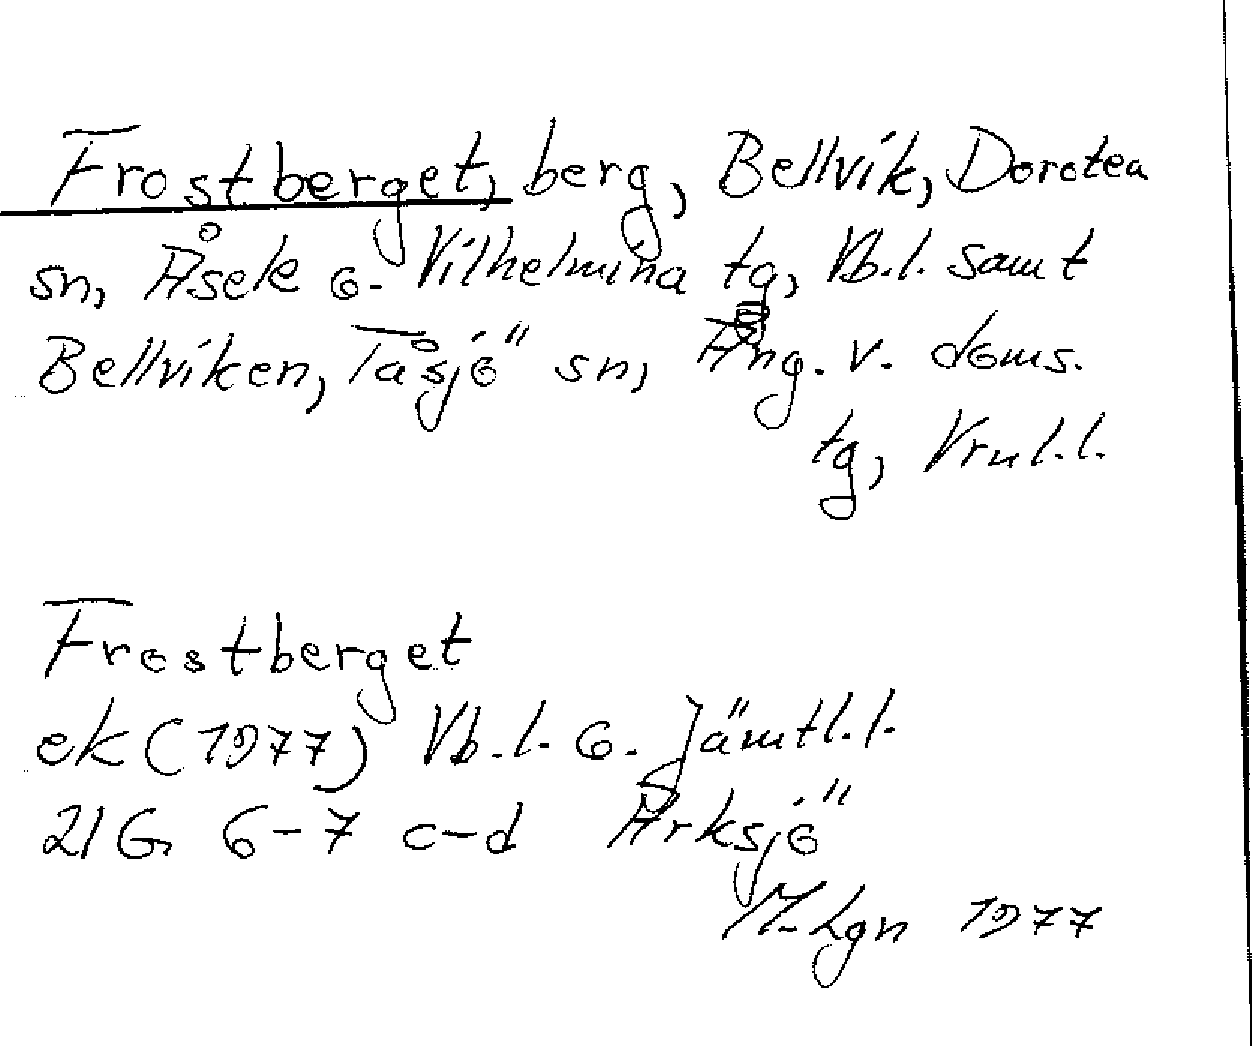 Frostberget, berg, Bellvik, Dorotea
sn, Åsele o. Vilhelmina tg, Vb.l. samt
Bellviken, Tåsjö sn, Ång. v. doms.
tg, Vrnl.l.
Frostberget
ek (1977) Vb.l. o. Jämtl.l.
21G 6-7 c-d Arksjö
M-Lgn 1977